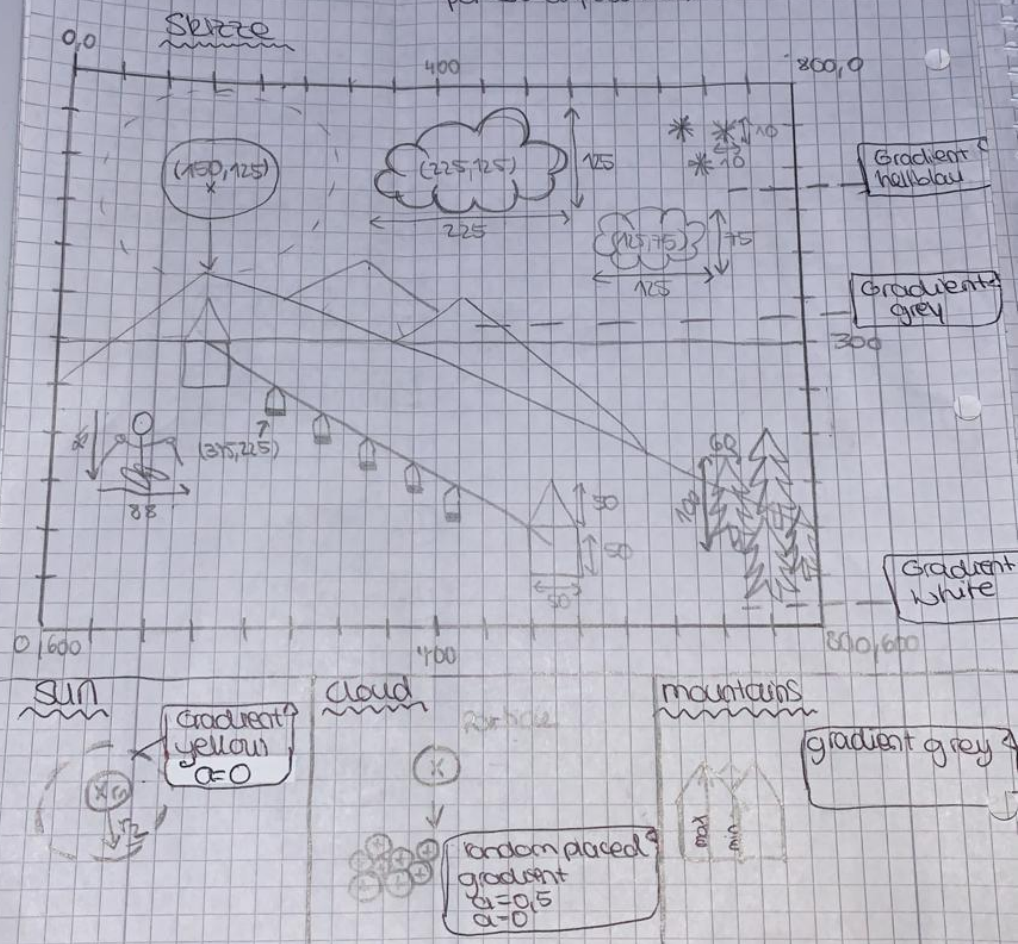 Skizze
0,0
400
800,0
(150,125)
x
(225,125)
125
225
10
10
Gradient
hellblau
(125,75)
75
125
Gradient
grey
300
(375,225)
88
60
100
50
50
50
Gradient
white
0,600
400
800,600
sun
Gradient
yellow
a=0
x r1
r2
cloud
Particle
x
random placed
gradient
a=0,5
a=0
mountains
gradient grey
max
min